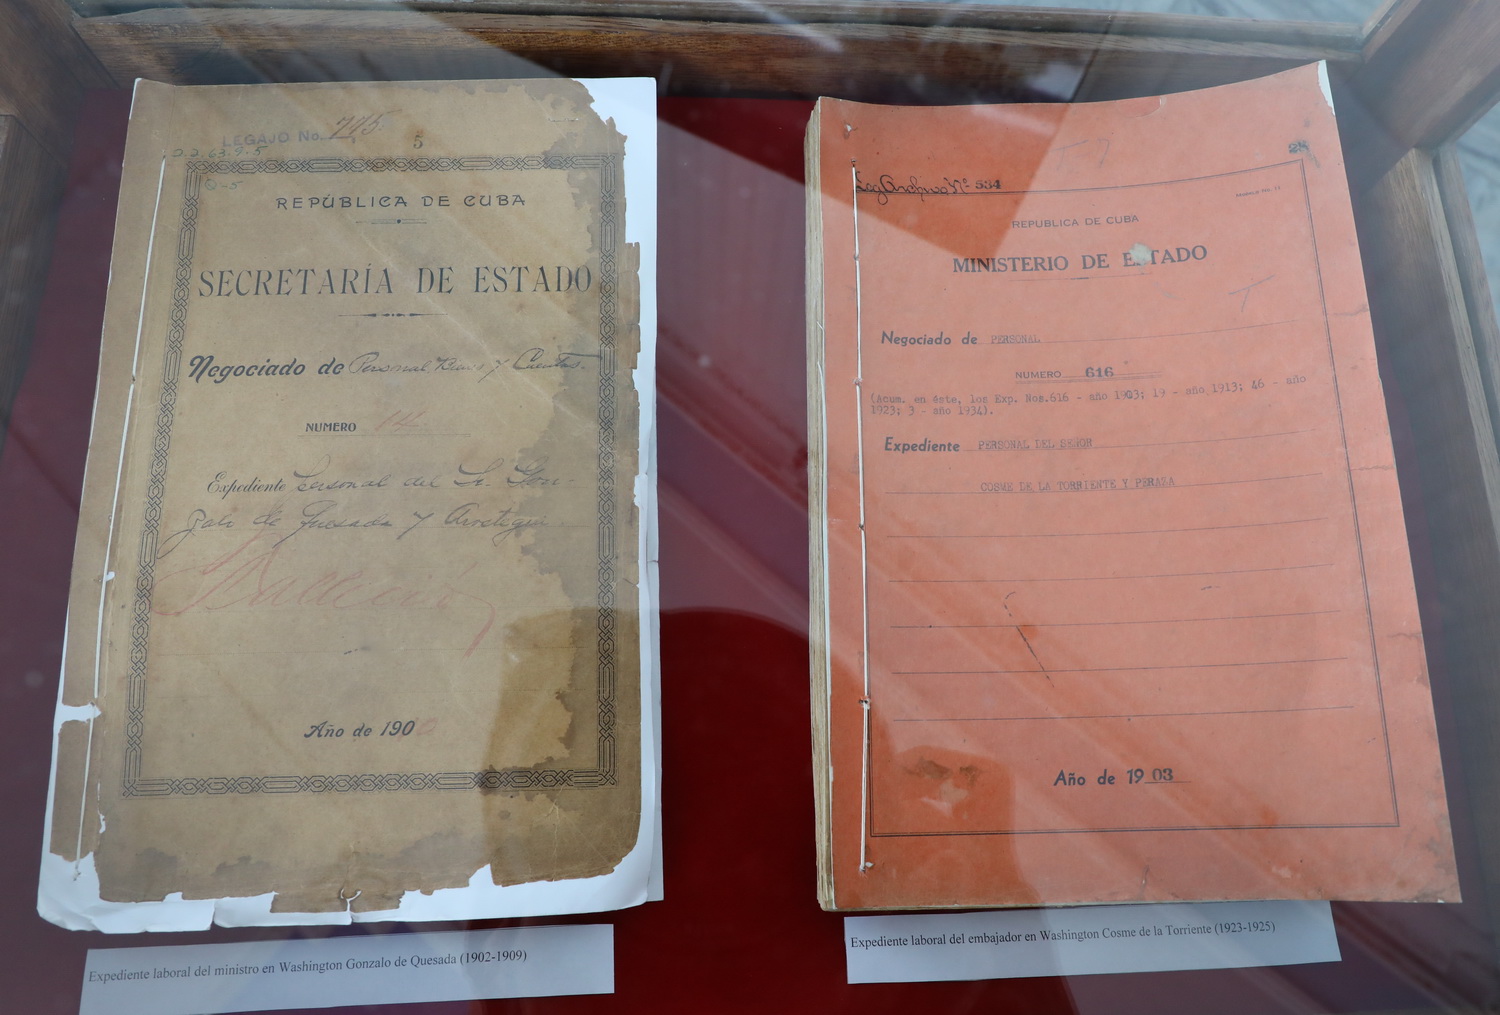 LEGAJO No. 775
5
2.2.63.9.5
Q-5
REPÚBLICA DE CUBA
SECRETARÍA DE ESTADO
Negociado de Personal Bienes y Cuentas.
NUMERO 14
Expediente personal del Sr. Gon-
zalo de Quesada y Arostegui
Año de 190
Expediente laboral del ministro en Washington Gonzalo de Quesada (1902-1909)
Leg Archivo Nº 534
REPUBLICA DE CUBA
MINISTERIO DE ESTADO
Negociado de PERSONAL
NUMERO 616
(Acum. en éste, los Exp. Nos.616 - año 1903; 19 - año 1913; 46 - año
1923; 3 - año 1934).
Expediente PERSONAL DEL SEÑOR
COSME DE LA TORRIENTE Y PERAZA
Año de 1903
Expediente laboral del embajador en Washington Cosme de la Torriente (1923-1925)